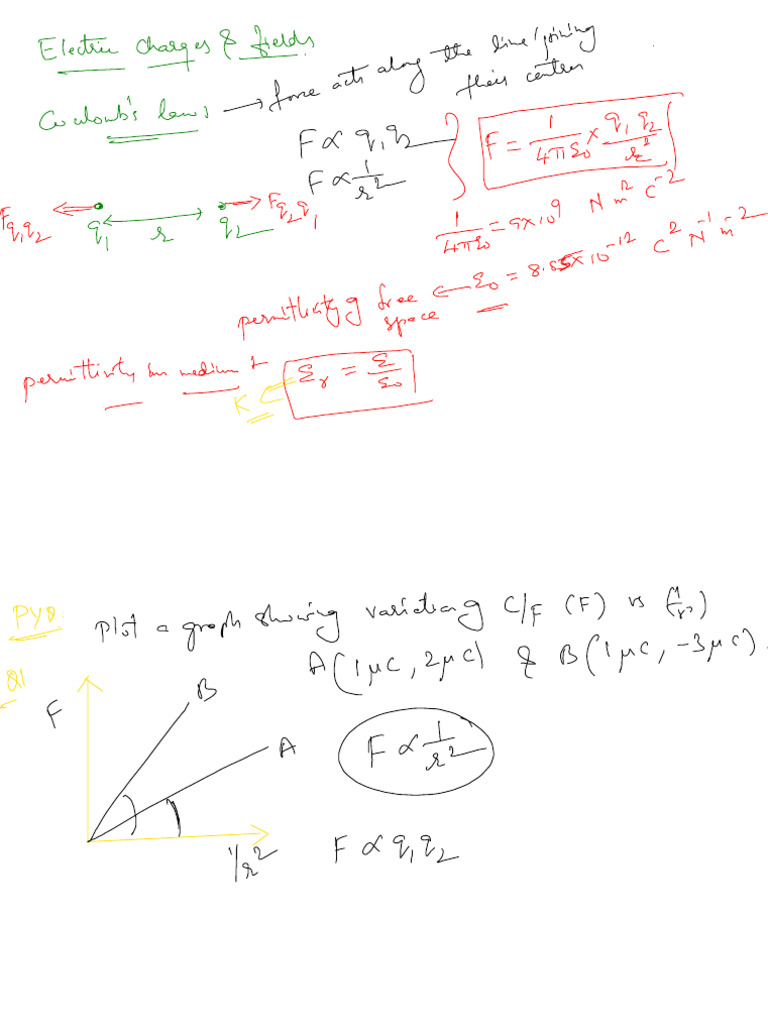 Electric charges & fields
Coulomb's laws → force acts along the line joining their centres
F ∝ q₁q₂
F ∝ 1/r²
F = 1/4πε₀ × q₁q₂/r²
F q₁q₂ q₁ r q₂ F q₂q₁
1/4πε₀ = 9×10⁹ N m² C⁻²
permittivity of free space ← ε₀ = 8.85×10⁻¹² C² N⁻¹ m⁻²
permittivity in medium
εᵣ = ε/ε₀
K
PYQ. Plot a graph showing variation of C/F (F) vs (1/r²)
Q1 A(1μC, 2μC) & B(1μC, -3μC).
F B
A
F ∝ 1/r²
1/r²
F ∝ q₁q₂